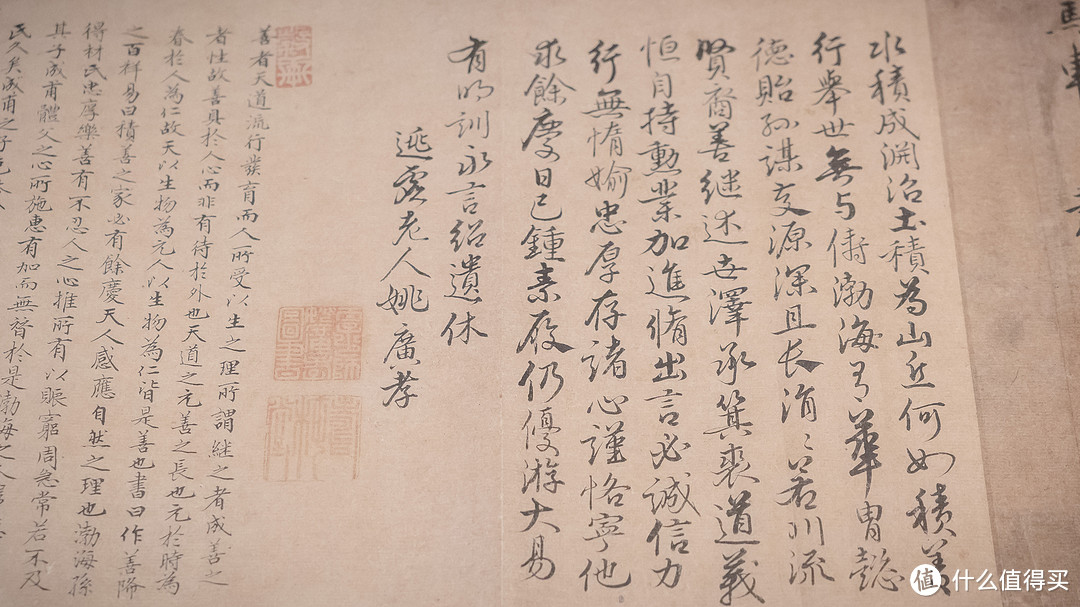 水積成淵沼土積為山丘何如積善
行舉世無与儔渤海有華胄懿
德貽孫謀支源深且长涓〻若川流
賢裔善継述世澤承箕裘道義
恒自持勳業加進脩出言必誠信力
行無惰媮忠厚存諸心謹恪寧他
求餘慶日已鍾素履仍優游大易
有明訓永言绍遺休
逃虛老人姚廣孝
善者天道流行發育而人所受以生之理所謂継之者成善之
者性故善具於人心而非有待於外也天道之元善之長也元於時為
春於人為仁故天以生物為元人以生物為仁皆是善也書曰作善降
之百祥易曰積善之家必有餘慶天人感應自然之理也渤海孫
得材氏忠厚樂善有不忍人之心推所有以賑窮周急常若不及
其子成甫體父之心所施惠有加而無替於是渤海之人
氏久矣成甫之子
值 什么值得买